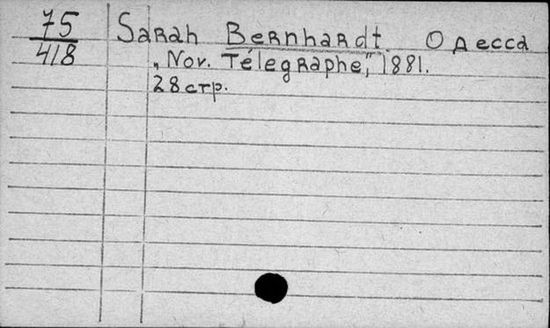 75 Sarah Bernhardt. Одесса
418 „Nov. Télegraphe," 1881.
28 стр.